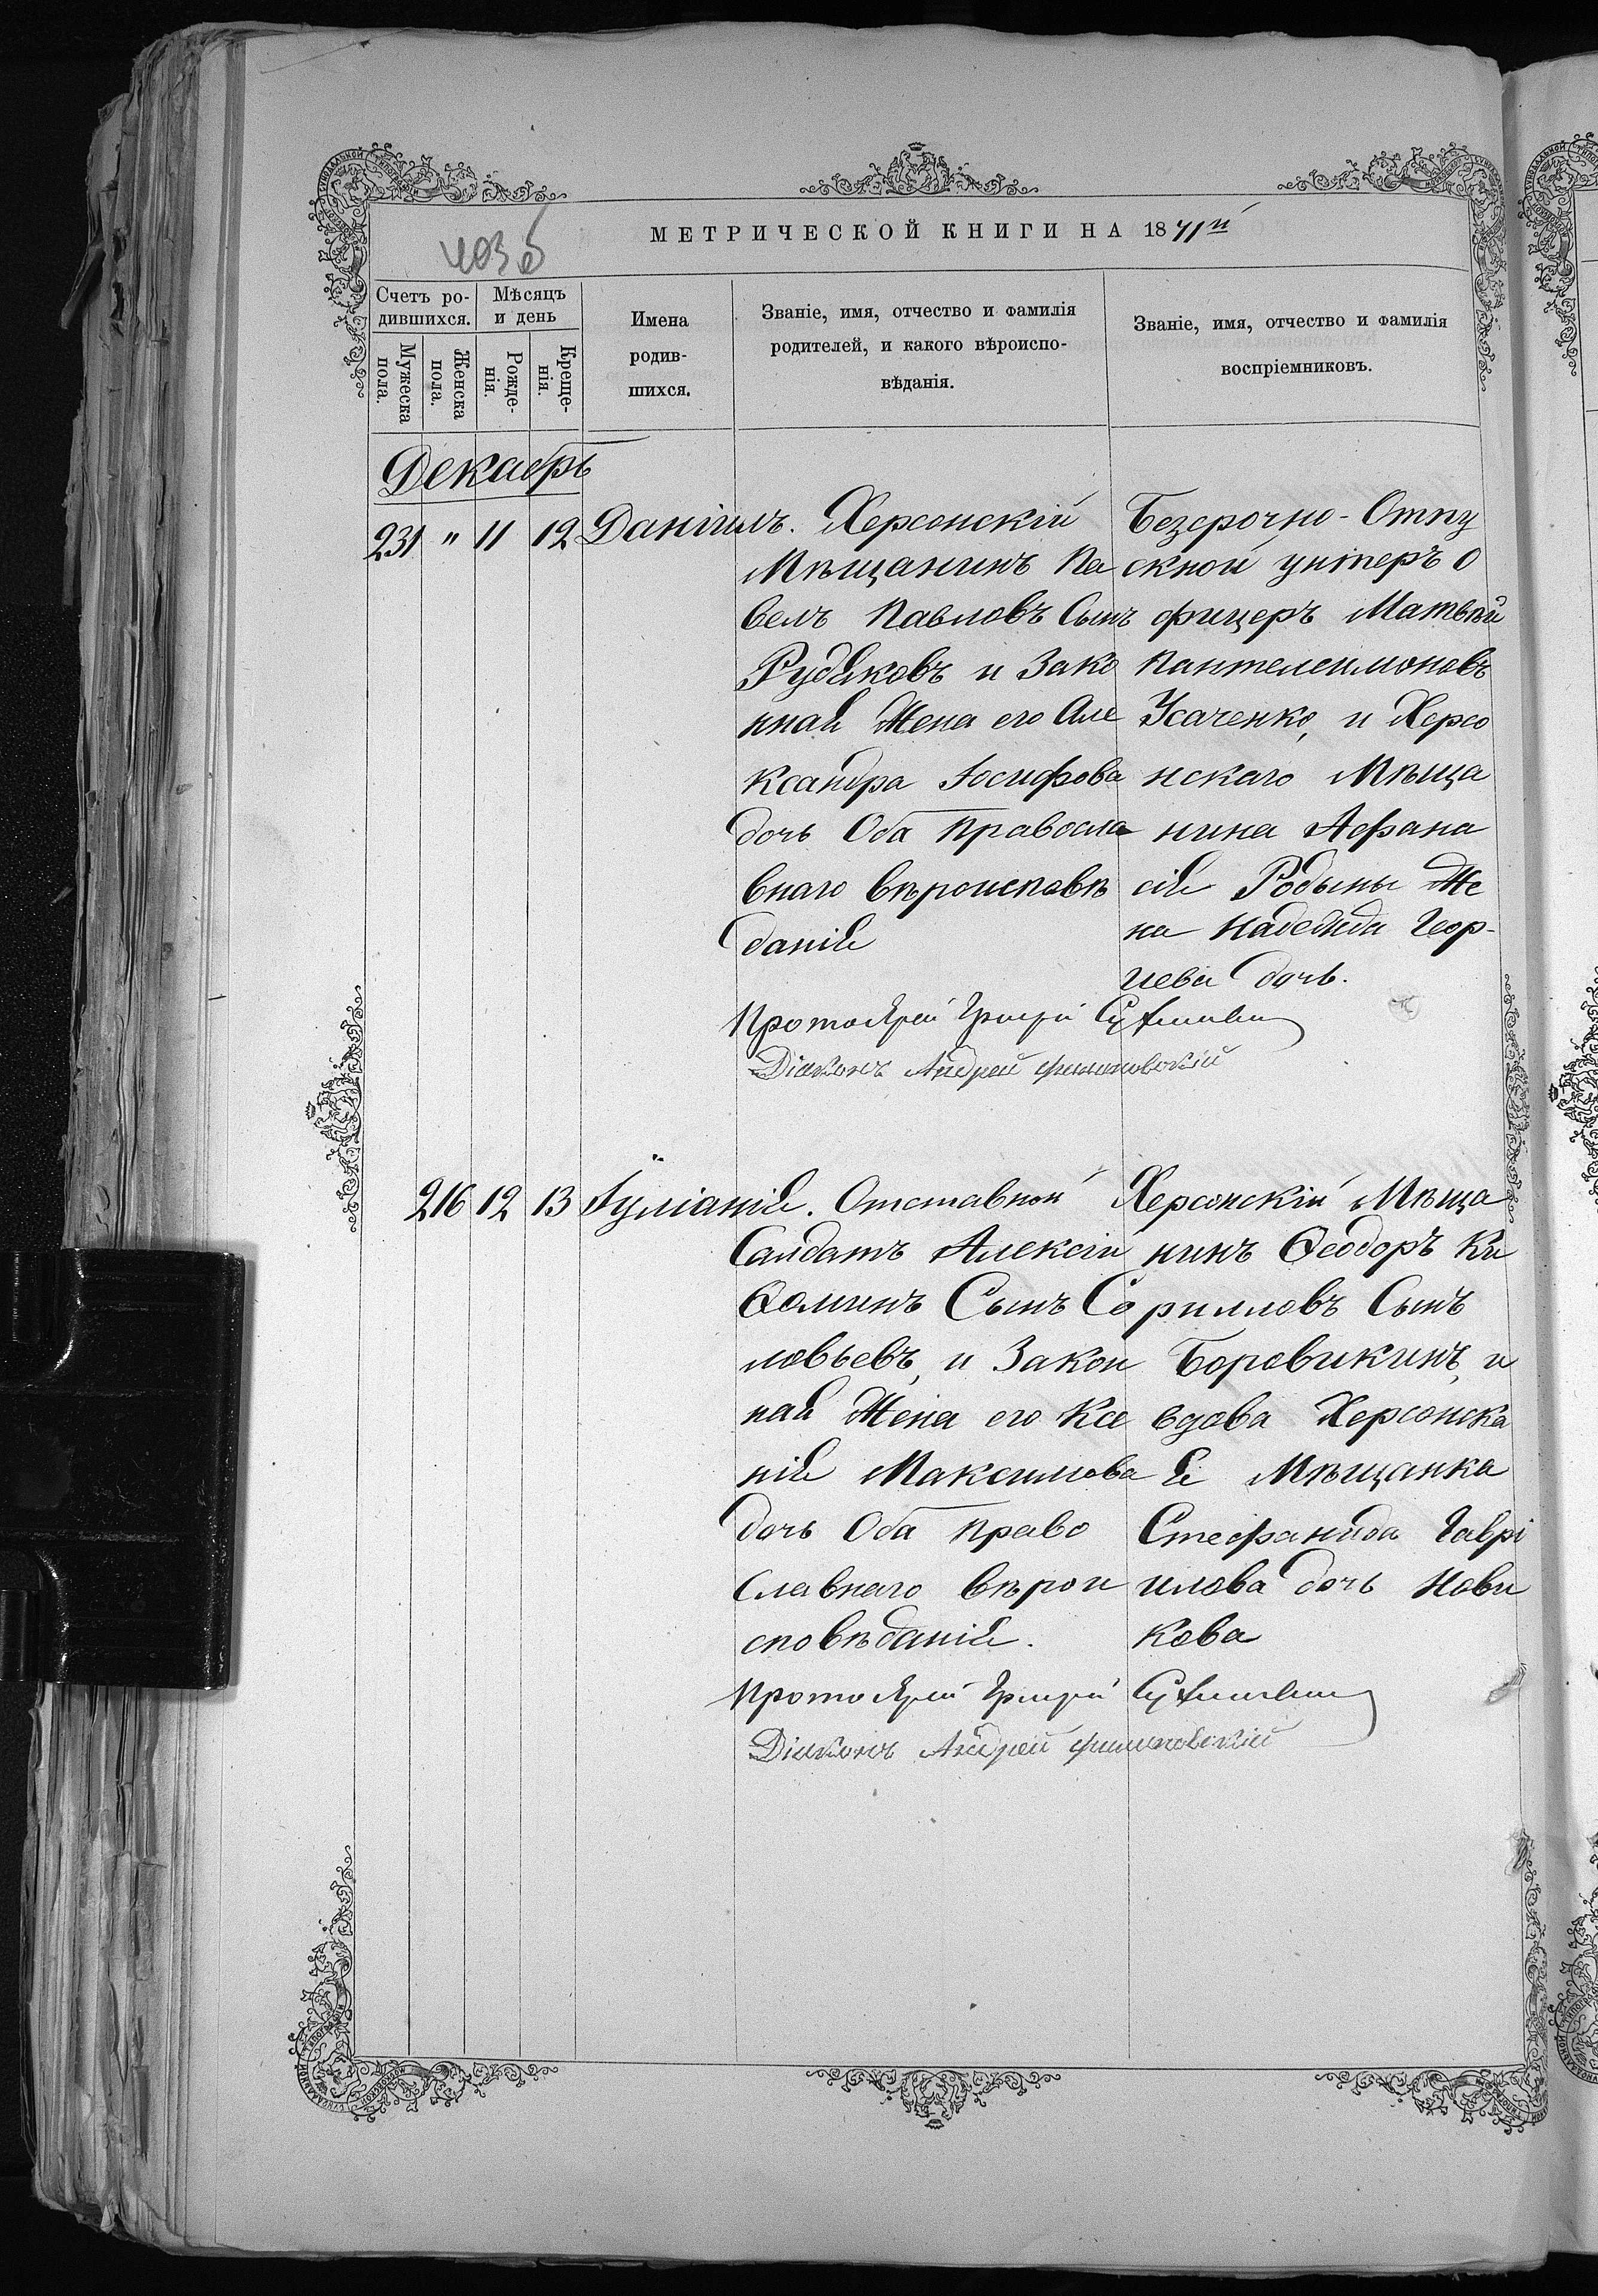 МЕТРИЧЕСКОЙ КНИГИ НА 1871й
403 б
Счетъ ро-
дившихся.
Мѣсяцъ
и день
Мужеска
пола.
Женска
пола.
Рожде-
нія.
Креще-
нія.
Имена
родив-
шихся.
Званіе, имя, отчество и фамилія
родителей, и какого вѣроиспо-
вѣданія.
Званіе, имя, отчество и фамилія
воспріемниковъ.
Декабрь
231 " 11 12 Даніилъ.
Херсонскій
Мѣщанинъ Па
велъ Павловъ Сынъ
Рудяковъ и Зако
нная Жена его Але
ксандра Іосифова
дочь Оба Правосла
внаго вѣроисповѣ
данія
Безсрочно-Отпу
скной унтеръ О
фицеръ Матвѣй
Пантелеимоновъ
Усаченко, и Херсо
нскаго Мѣща
нина Афана
сія Родыны Же
на Надежда Геор-
гіева дочь.
Протоіерей Григорій
Діаконъ Андрей
216 12 13 Іуліанія.
Отставной
Салдатъ Алексій
Ѳоминъ Сынъ Со
ловьевъ, и Закон
ная Жена его Ксе
нія Максимова
дочь Оба Право
славнаго вѣрои
сповѣданія.
Херсонскій Мѣща
нинъ Ѳеодоръ Ки
рилловъ Сынъ
Боровикинъ, и
вдова Херсонска
я Мѣщанка
Стефанида Гаврі
илова дочь Нови
кова
Протоіерей Григорій
Діаконъ Андрей